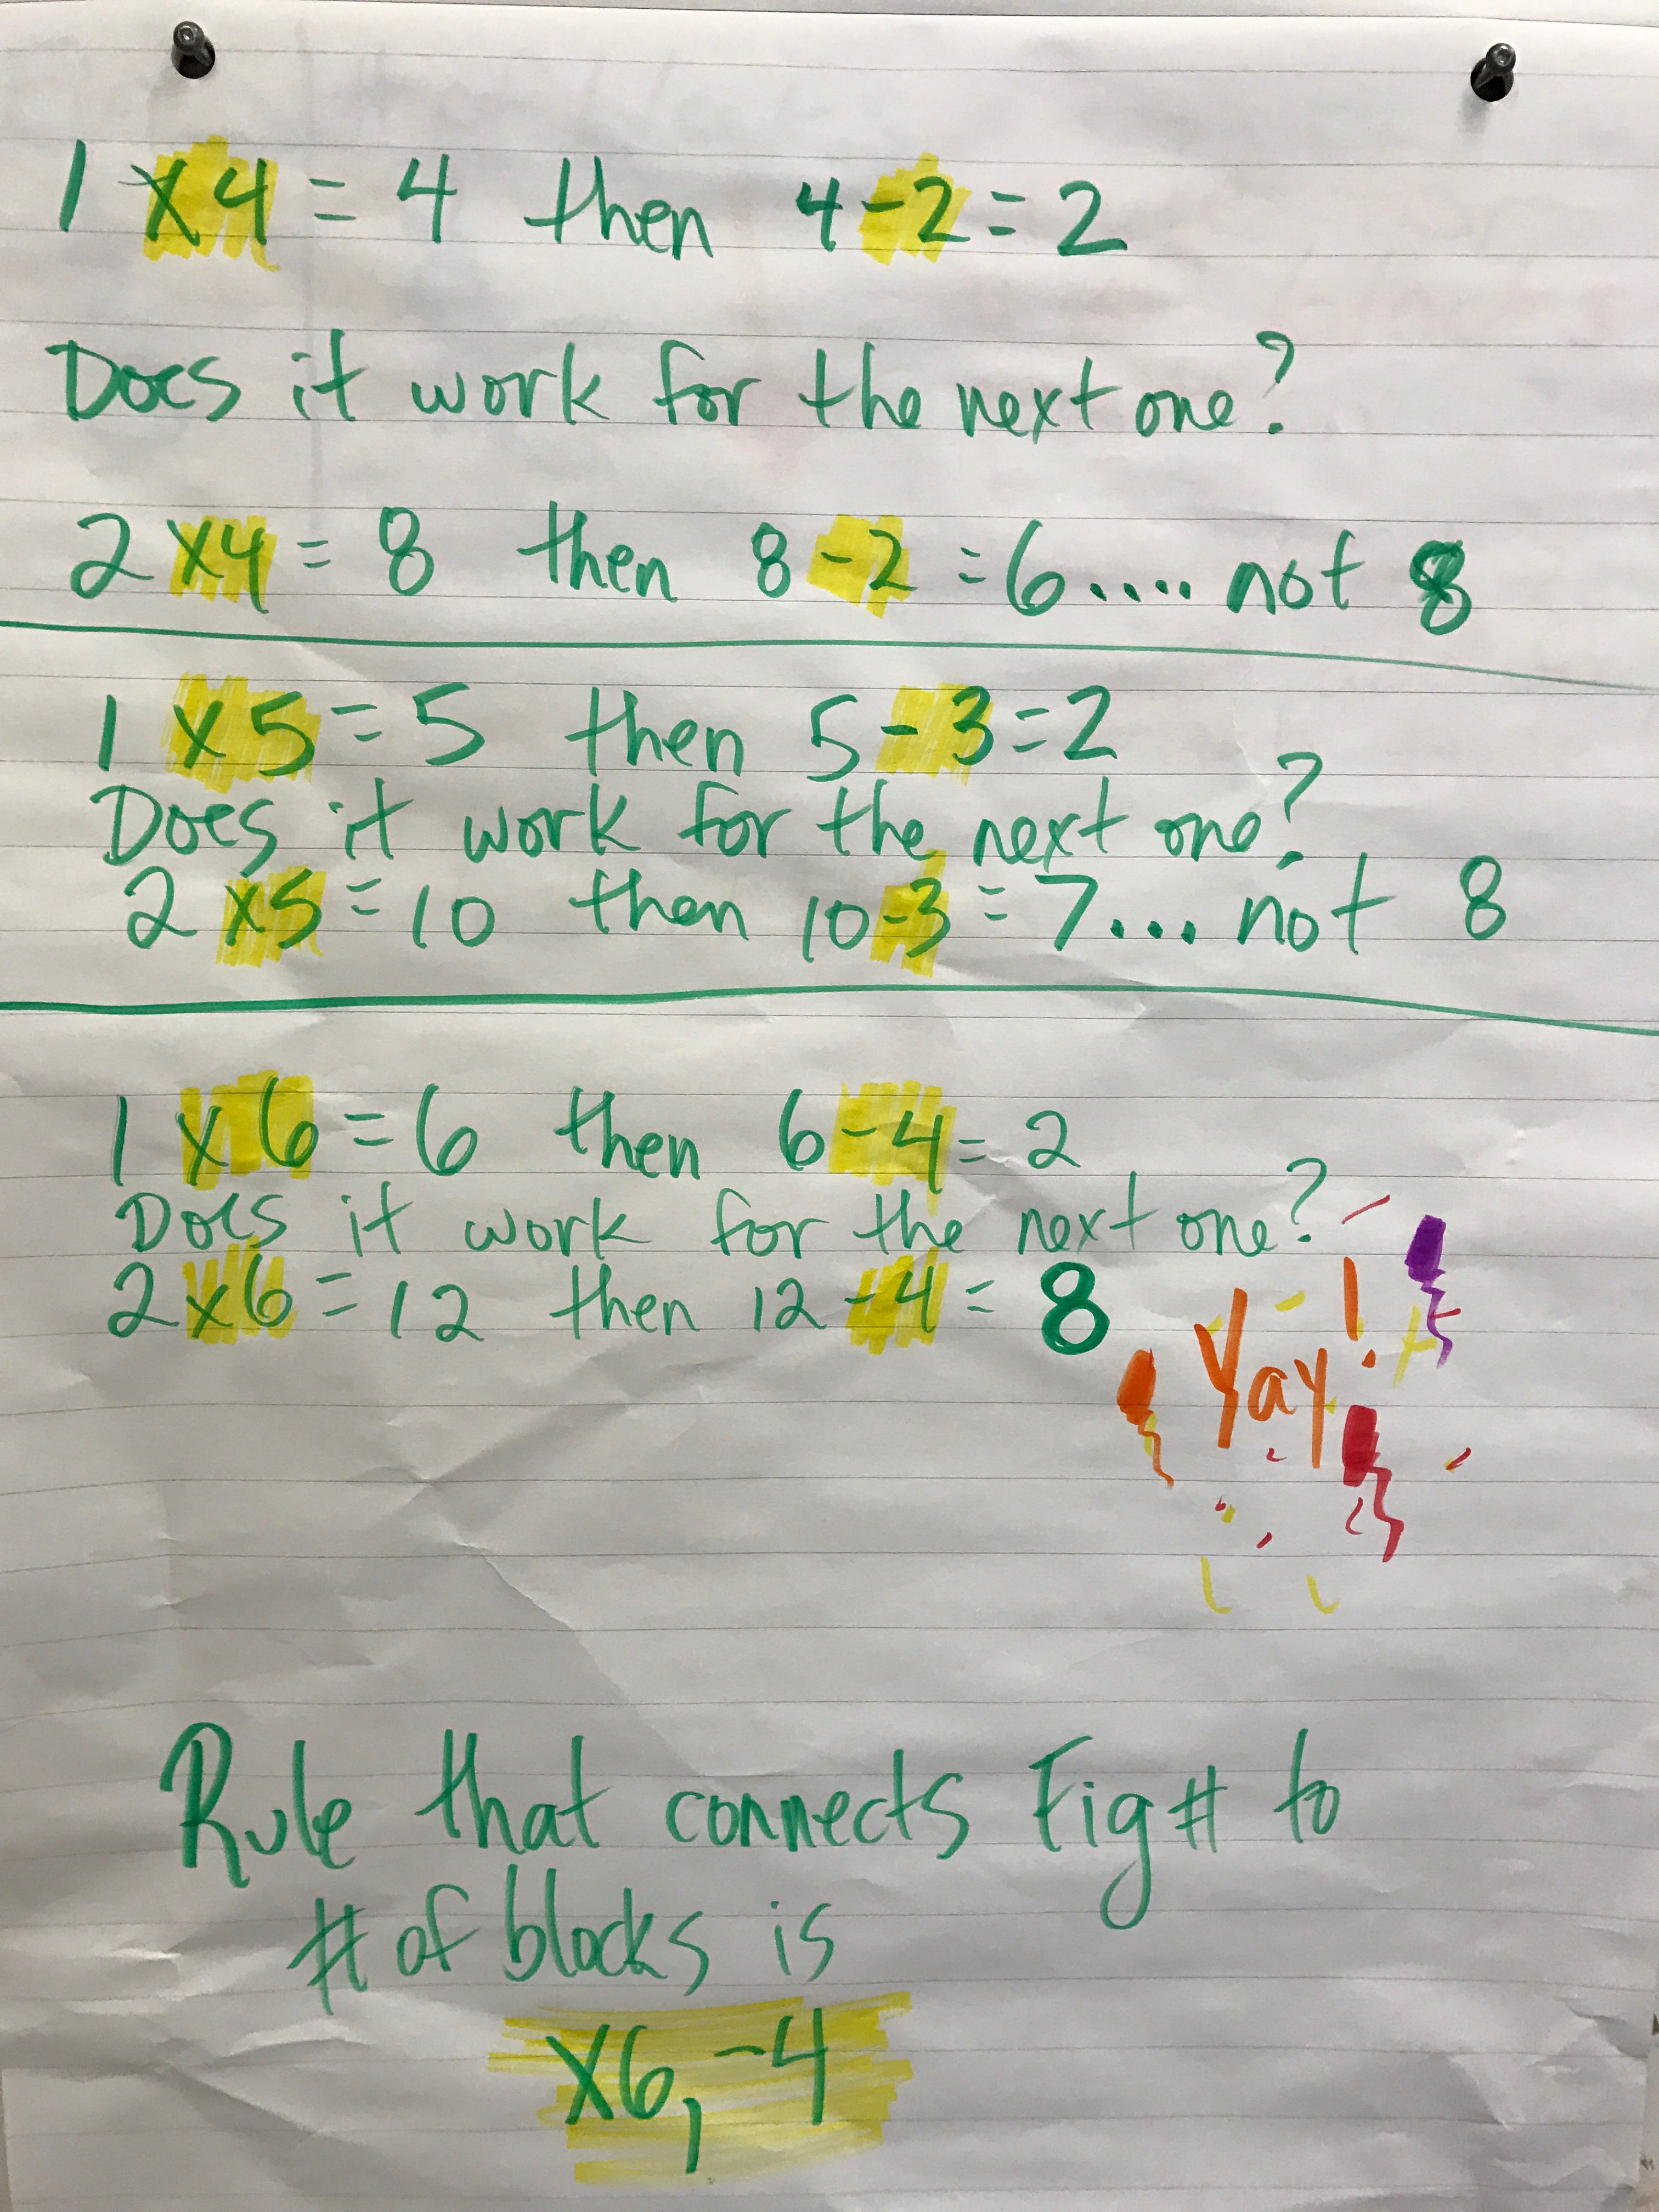 1 x4 = 4 then 4-2=2
Does it work for the next one?
2 x4 = 8 then 8-2 =6.... not 8
1 x5 =5 then 5-3=2
Does it work for the next one?
2 x5 = 10 then 10-3 = 7... not 8
1 x6 =6 then 6-4= 2
Does it work for the next one?
2 x6 = 12 then 12-4= 8
Yay!
Rule that connects Fig# to
# of blocks is
x6, -4